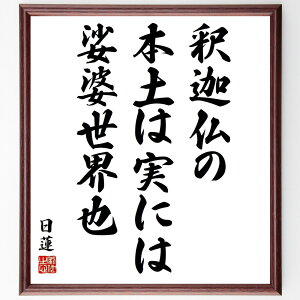 釈迦仏の
本土は実には
娑婆世界也
日蓮